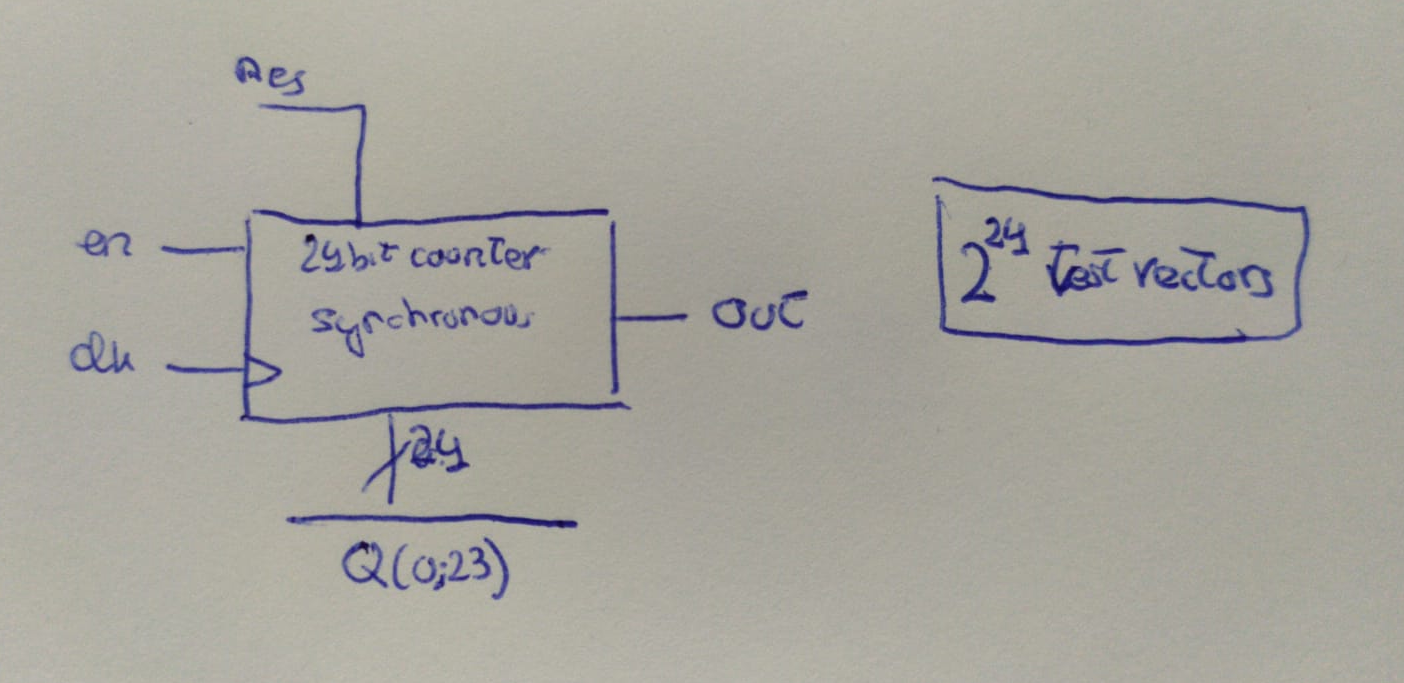 Res
en
24bit counter
synchronous
clk
out
24
Q(0;23)
2^24 test vectors